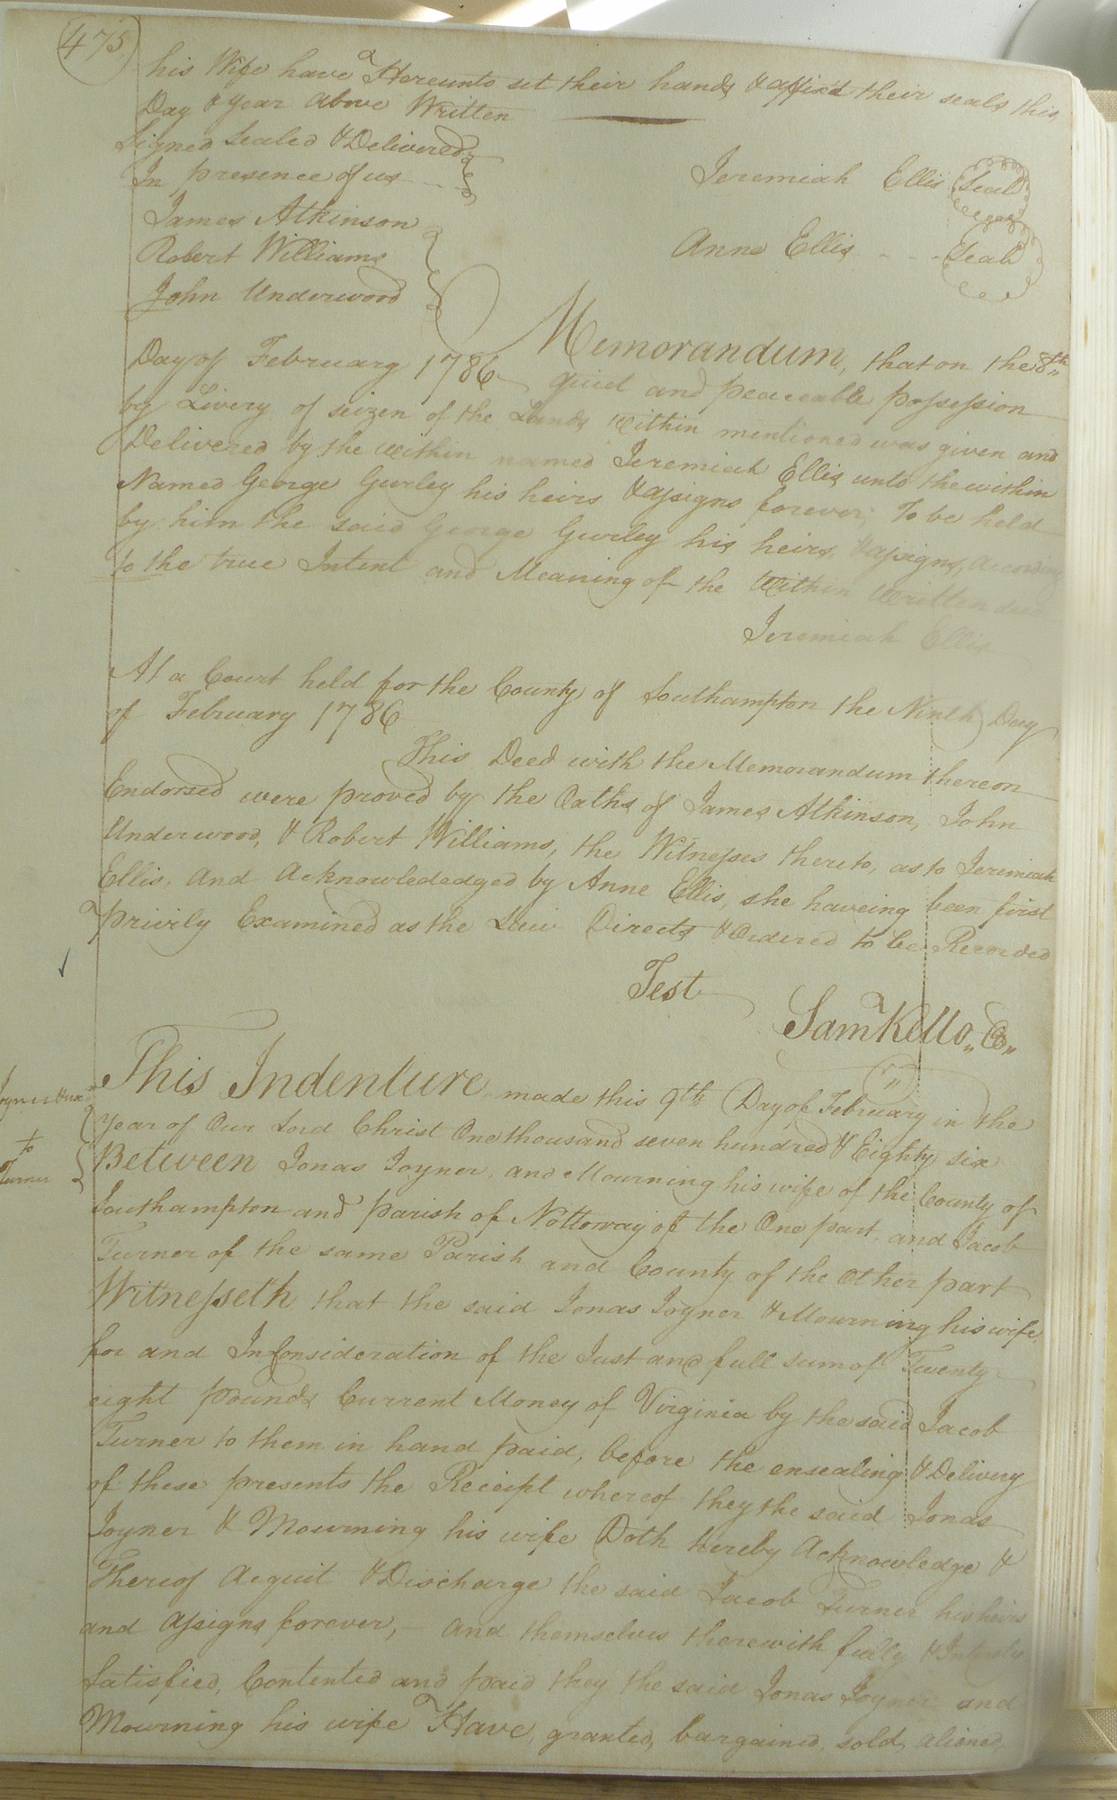 475
his Wife have Hereunto set their hands & affix'd their seals this
Day & Year above Written
Signed Sealed & Delivered
In presence of us
Jeremiah Ellis Seal
James Atkinson
Robert Williams
Anne Ellis Seal
John Underwood
Memorandum, that on the 8th
Day of February 1786 quiet and peaceable possession
by Livery of seizen of the Lands within mentioned was given and
Delivered by the within named Jeremiah Ellis unto the within
Named George Gurley his heirs & assigns forever; To be held
by him the said George Gurley his heirs & assigns, according
to the true Intent and Meaning of the Within Written deed
Jeremiah Ellis
At a Court held for the County of Southampton the Ninth Day
of February 1786
This Deed with the Memorandum thereon
Endorsed were proved by the Oaths of James Atkinson, John
Underwood, & Robert Williams, the Witnesses thereto, as to Jeremiah
Ellis, And Acknowlededged by Anne Ellis, she haveing been first
privily Examined as the Law Directs & Ordered to be Recorded
Test
Saml Kello
This Indenture made this 9th Day of February in the
Joyner &ux
Year of Our Lord Christ One thousand seven hundred & Eighty six
to
Between Jonas Joyner, and Mourning his wife of the County of
Turner
Southampton and parish of Nottoway of the One part, and Jacob
Turner of the same Parish and County of the other part
Witnesseth that the said Jonas Joyner & Mourning his wife
for and In Consideration of the Just and full sum of Twenty
eight pounds Current Money of Virginia by the said Jacob
Turner to them in hand paid, before the ensealing & Delivery
of these presents the Receipt whereof they the said Jonas
Joyner & Mourning his wife Doth Hereby Acknowledge &
Thereof Acquit & Discharge the said Jacob Turner his heirs
and Assigns forever, - And themselves therewith fully & Intirely
Satisfied, Contented and paid they the said Jonas Joyner and
Mourning his wife Have, granted, bargained, sold, aliened,